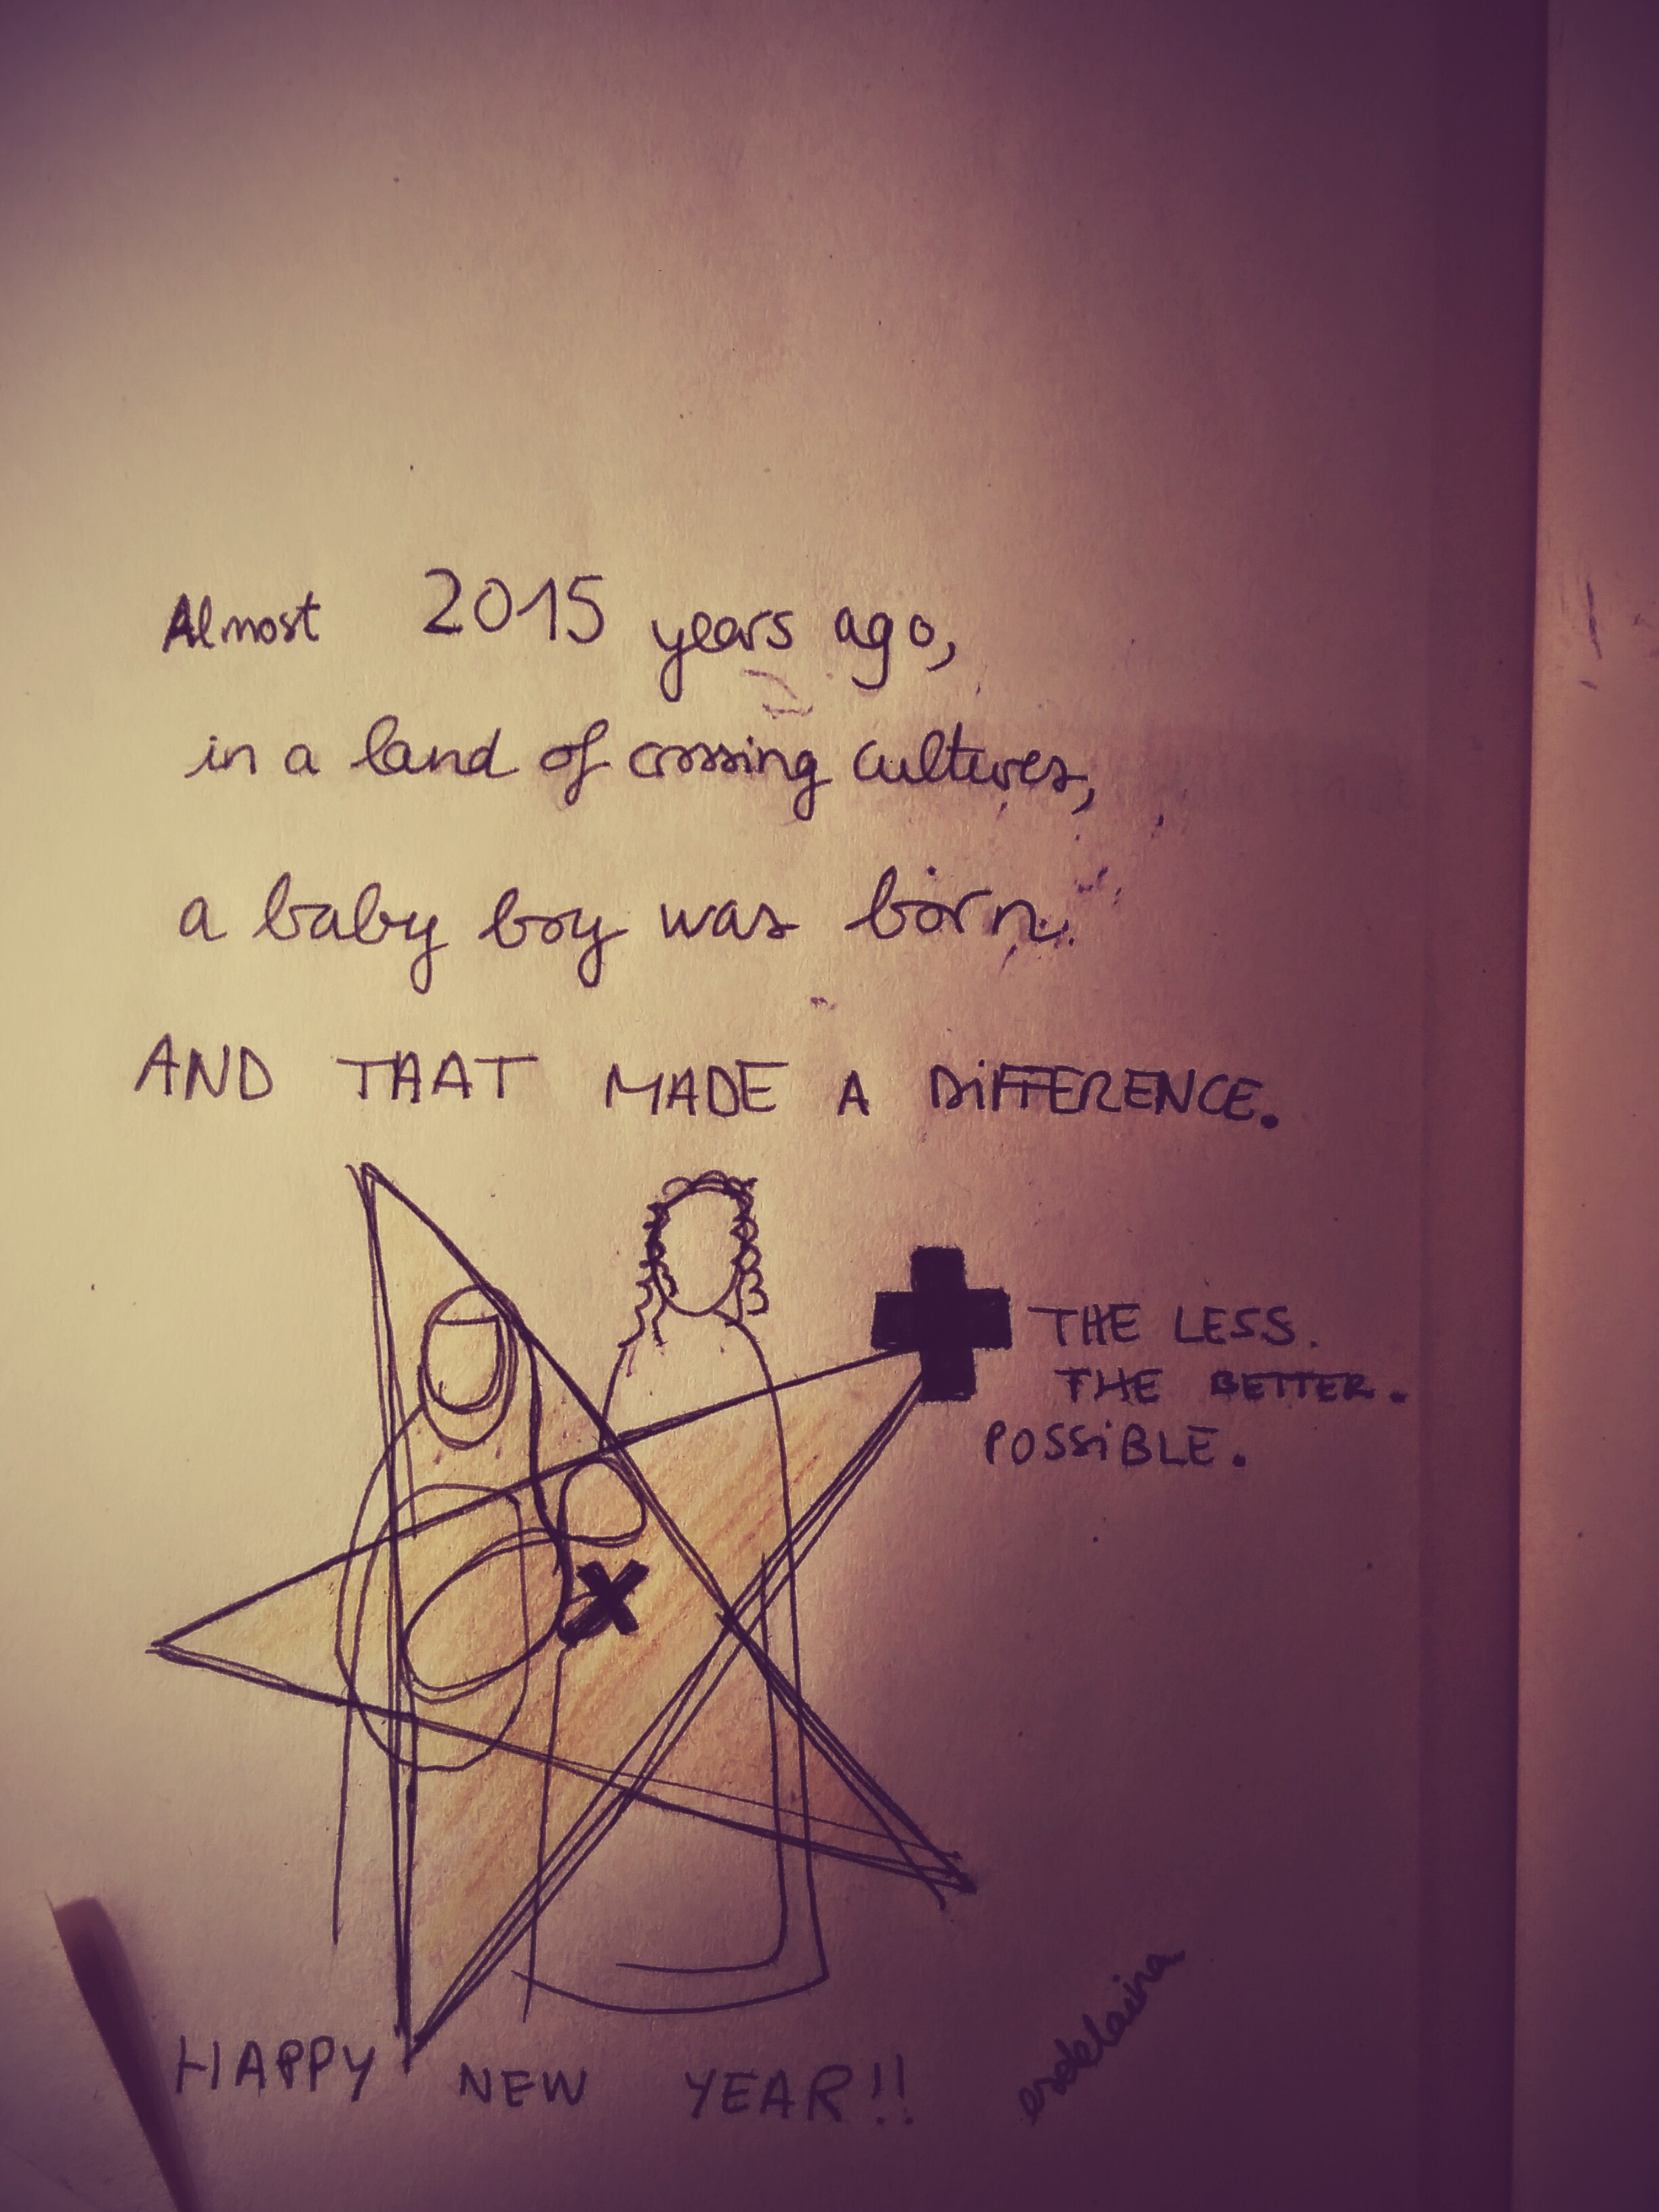 Almost 2015 years ago,
in a land of crossing cultures,
a baby boy was born.
AND THAT MADE A DIFFERENCE.
THE LESS.
THE BETTER.
POSSIBLE.
HAPPY NEW YEAR!!